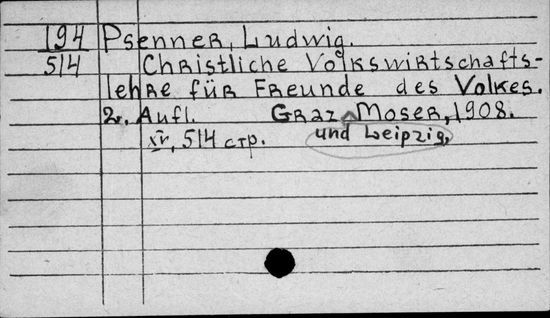 194 Psenner, Ludwig.
514 Christliche Volkswirtschafts-
lehre für Freunde des Volkes.
2. Aufl. Graz Moser, 1908.
und Leipzig,
XV, 514 стр.